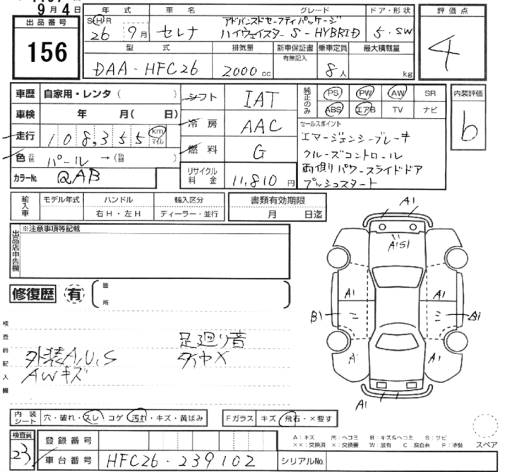 9月4日
出品番号
156
年式
車名
グレード
ドア・形状
26年9月
セレナ
アドバンスドセーフティパッケージ
ハイウェイスターS-HYBRID
5・SW
型式
排気量
新車保証書
乗車定員
最大積載量
有無記入
DAA-HFC26
2000cc
8人
kg
評価点
4
車歴
自家用・レンタ( )
車検
年 月( 日)
走行
108,355
km
マイル
色
パール→( )
カラーNo.
QAB
シフト
IAT
冷房
AAC
燃料
G
リサイクル料金
11,810円
純正のみ
PS PW AW SR
ABS エアB TV ナビ
セールスポイント
エマージェンシーブレーキ
クルーズコントロール
両側パワースライドドア
プッシュスタート
内装評価
b
輸入車
モデル年式
ハンドル
輸入区分
右H・左H
ディーラー・並行
書類有効期限
月 日迄
出品店申告欄
※注意事項等記載
修復歴
有
箇所
検査員記入欄
外装A,U,S
AWキズ
足廻り音
ダヤX
A1
A1S1
A1
A1
B1
B1
A
A1
A1
内装シート
穴・破れ・スレ・コゲ・汚れ・キズ・黄ばみ
Fガラス
キズ・飛石・×要す
検査員
23
登録番号
車台番号
HFC26-239102
シリアルNo.
スペア